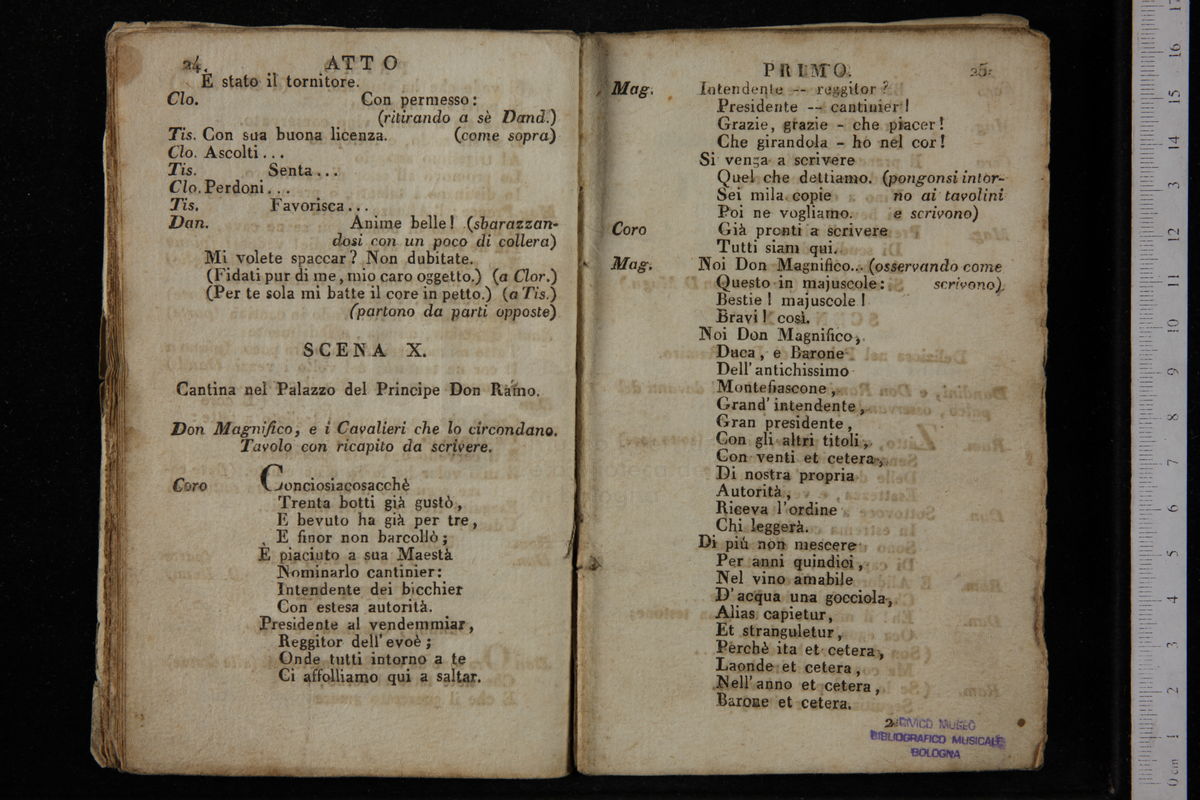 24.
ATTO
È stato il tornitore.
Clo. Con permesso:
(ritirando a sè Dand.)
Tis. Con sua buona licenza. (come sopra)
Clo. Ascolti...
Tis. Senta...
Clo. Perdoni...
Tis. Favorisca...
Dan. Anime belle! (sbarazzan-
dosi con un poco di collera)
Mi volete spaccar? Non dubitate.
(Fidati pur di me, mio caro oggetto.) (a Clor.)
(Per te sola mi batte il core in petto.) (a Tis.)
(partono da parti opposte)
SCENA X.
Cantina nel Palazzo del Principe Don Ramo.
Don Magnifico, e i Cavalieri che lo circondano.
Tavolo con ricapito da scrivere.
Coro Conciosiacosacchè
Trenta botti già gustò,
E bevuto ha già per tre,
E finor non barcollò;
È piaciuto a sua Maestà
Nominarlo cantinier:
Intendente dei bicchier
Con estesa autorità.
Presidente al vendemmiar,
Reggitor dell'evoè;
Onde tutti intorno a te
Ci affolliamo qui a saltar.
PRIMO.
25.
Mag. Intendente -- reggitor?
Presidente -- cantinier!
Grazie, grazie - che piacer!
Che girandola - ho nel cor!
Si venga a scrivere
Quel che dettiamo. (pongonsi intor-
Sei mila copie no ai tavolini
Poi ne vogliamo. e scrivono)
Coro Già pronti a scrivere
Tutti siam qui.
Mag. Noi Don Magnifico... (osservando come
Questo in majuscole: scrivono)
Bestie! majuscole!
Bravi! così.
Noi Don Magnifico,
Duca, e Barone
Dell'antichissimo
Montefiascone,
Grand'intendente,
Gran presidente,
Con gli altri titoli,
Con venti et cetera,
Di nostra propria
Autorità,
Riceva l'ordine
Chi leggerà.
Di più non mescere
Per anni quindici,
Nel vino amabile
D'acqua una gocciola,
Alias capietur,
Et stranguletur,
Perchè ita et cetera,
Laonde et cetera,
Nell'anno et cetera,
Barone et cetera.
CIVICO MUSEO
BIBLIOGRAFICO MUSICALE
BOLOGNA